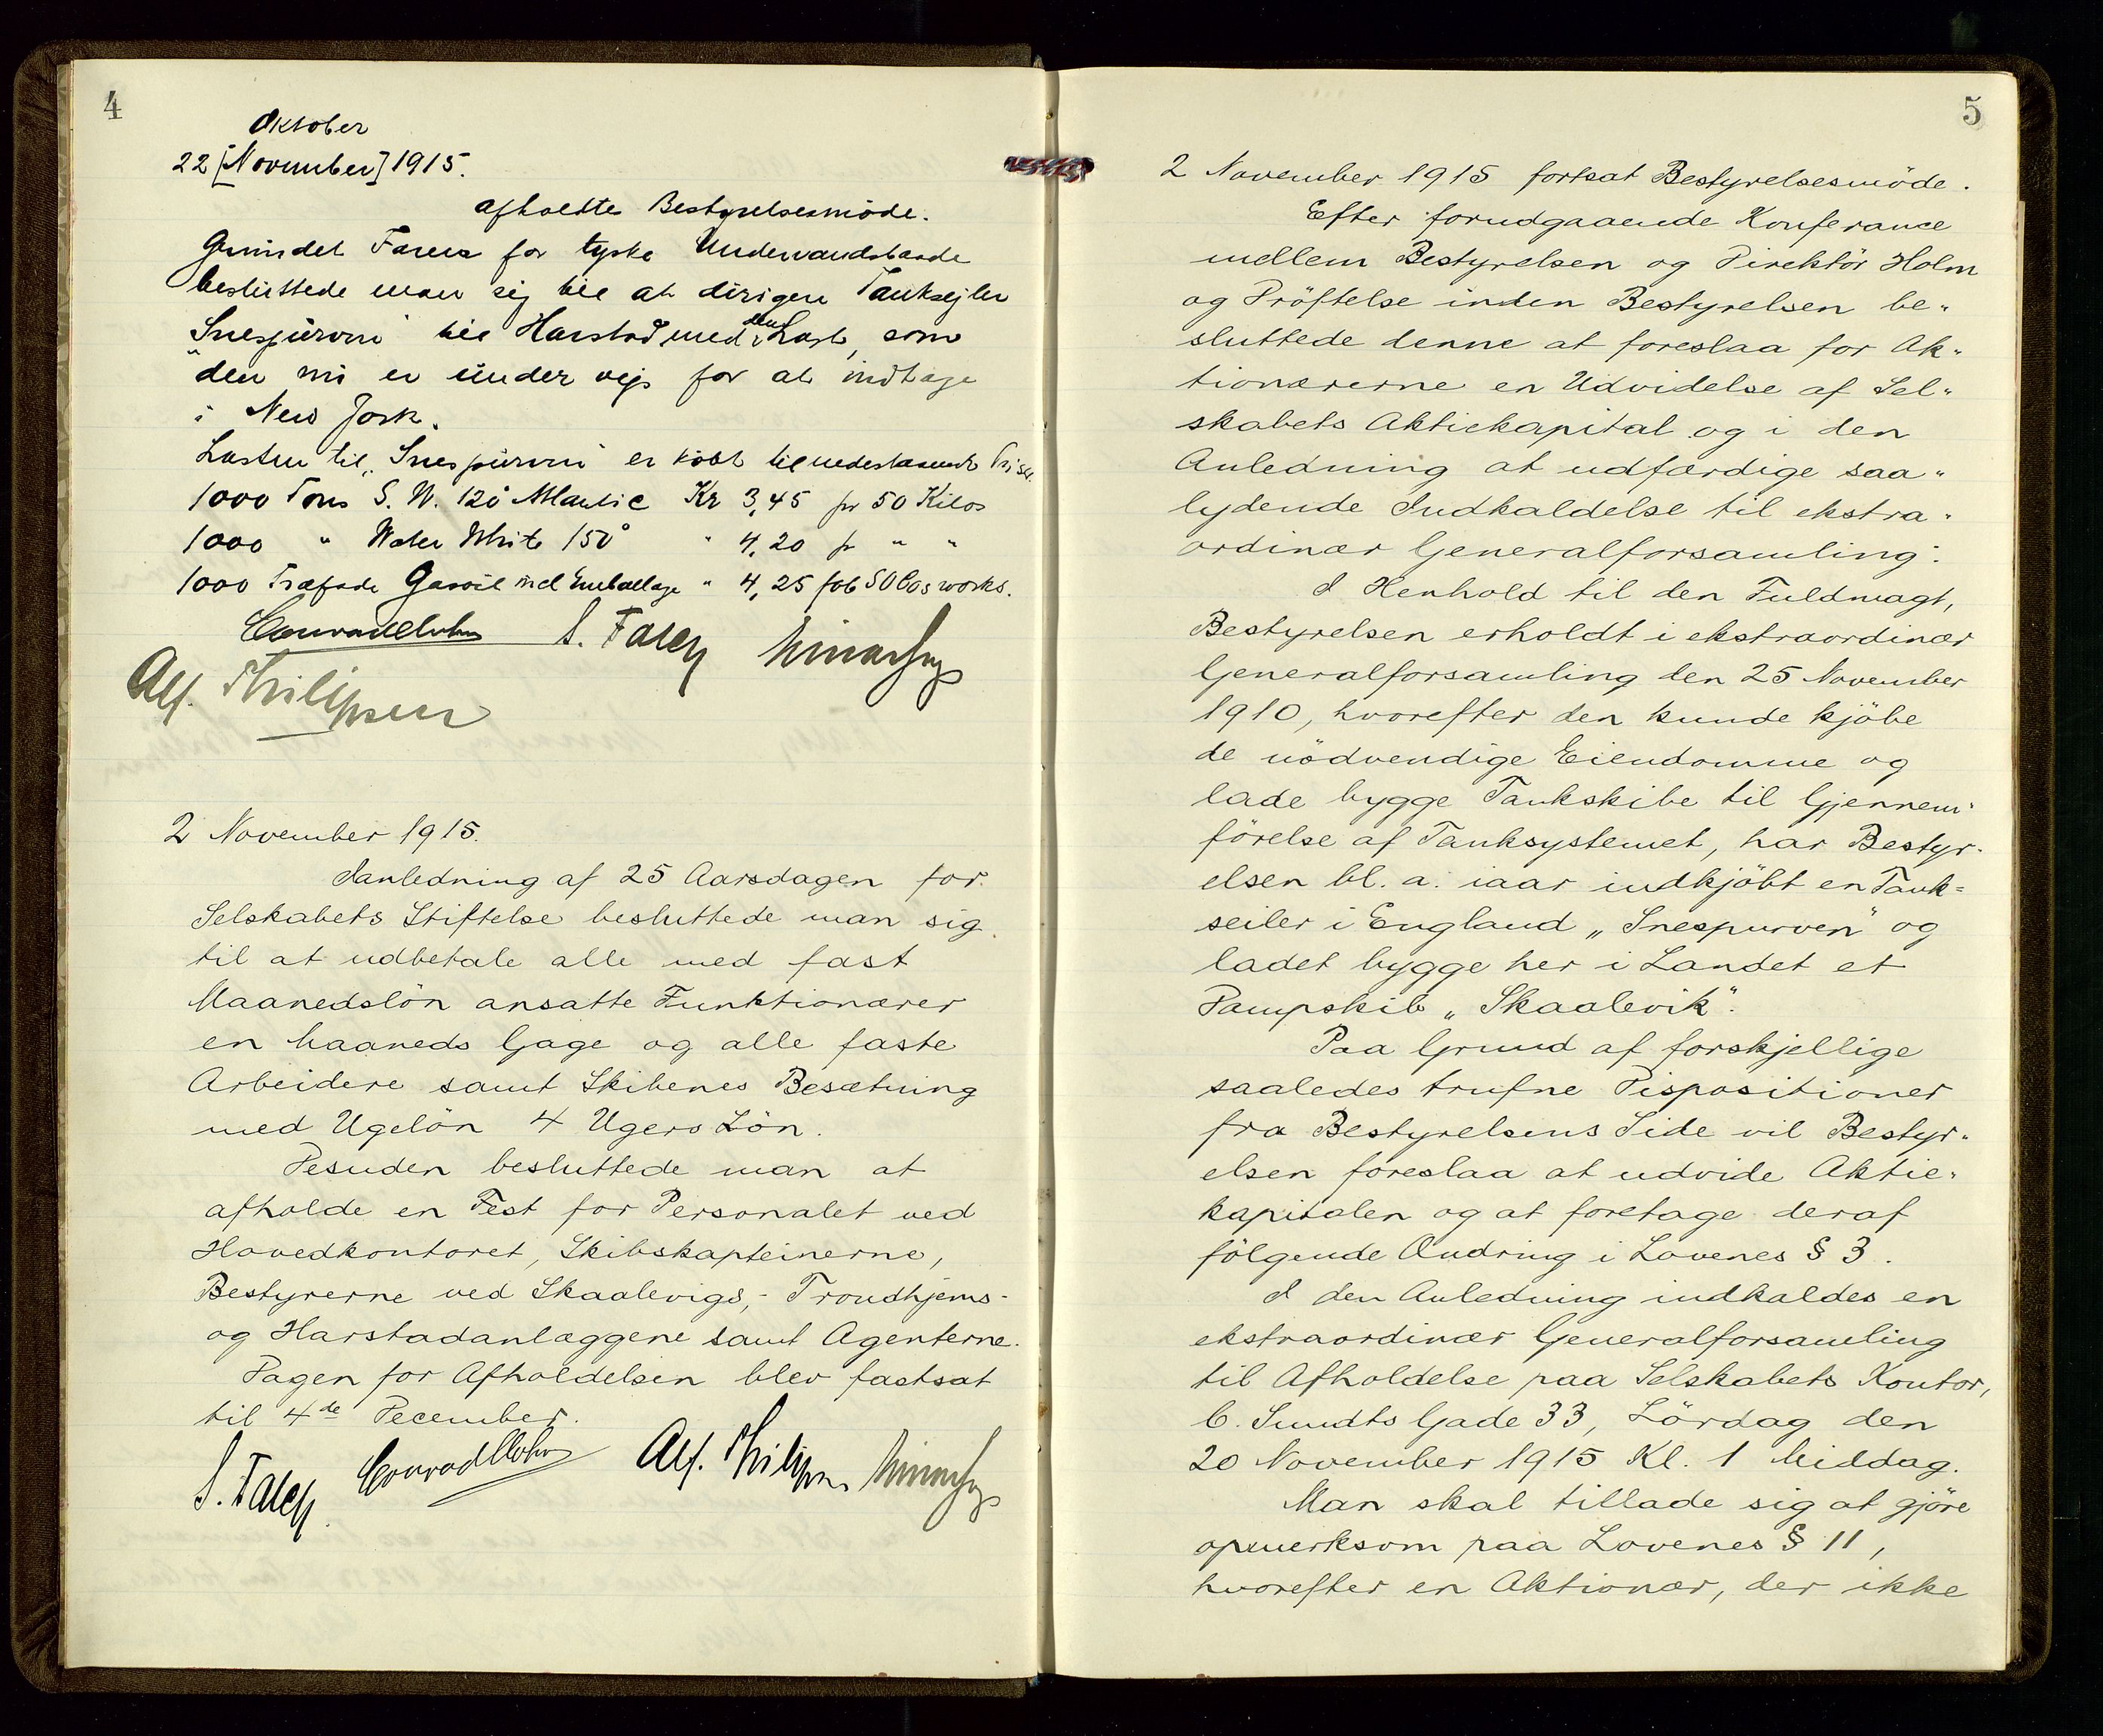 4
Oktober
22 [November] 1915.
afholdtes Bestyrelsesmöde.
Grundet Faren for tyske Undervandsbaade
besluttede man sig til at dirigere Tanksejler
"Snespurven" til Harstad med den Last, som
den nu er under vejs for at indtage
i New York.
Lasten til "Snespurven" er köbt til nedestaaende Priser.
1000 Tons S. W. 120° Atlantic Kr 3,45 pr 50 Kilos
1000 " Water White 150° " 4,20 pr " "
1000 Træfade Gasoil incl Emballage " 4,25 fob
Conrad Mohn S. Falck
Alf. Philipsen
2 November 1915.
I anledning af 25 Aarsdagen for
Selskabets Stiftelse besluttede man sig
til at udbetale alle med fast
Maanedslön ansatte Funktionærer
en Maaneds Gage og alle faste
Arbeidere samt Skibenes Besætning
med Ugelön 4 Ugers Lön.
Desuden besluttede man at
afholde en Fest for Personalet ved
Hovedkontoret, Skibskapteinerne,
Bestyrerne ved Skaalevigs,- Trondhjems-
og Harstadanlæggene samt Agenterne.
Dagen for Afholdelsen blev fastsat
til 4de December.
S. Falck Conrad Mohn Alf. Philipsen
5
2 November 1915 fortsat Bestyrelsesmöde.
Efter forudgaaende Konferance
mellem Bestyrelsen og Direktör Holm
og Dröftelse inden Bestyrelsen be-
sluttede denne at foreslaa for Ak-
tionærerne en Udvidelse af Sel-
skabets Aktiekapital og i den
Anledning at udfærdige saa-
lydende Indkaldelse til ekstra-
ordinær Generalforsamling:
I Henhold til den Fuldmagt,
Bestyrelsen erholdt i ekstraordinær
Generalforsamling den 25 November
1910, hvorefter den kunde kjöbe
de nödvendige Eiendomme og
lade bygge Tankskibe til Gjennem-
förelse af Tanksystemet, har Bestyr-
elsen bl. a. iaar indkjöbt en Tank-
seiler i England "Snespurven" og
ladet bygge her i Landet et
Dampskib "Skaalevik".
Paa Grund af forskjellige
saaledes trufne Dispositioner
fra Bestyrelsens Side vil Bestyr-
elsen foreslaa at udvide Aktie-
kapitalen og at foretage deraf
fölgende Ændring i Lovenes § 3.
I den Anledning indkaldes en
ekstraordinær Generalforsamling
til Afholdelse paa Selskabets Kontor,
C. Sundts Gade 33, Lördag den
20 November 1915 Kl. 1 Middag.
Man skal tillade sig at gjöre
opmerksom paa Lovenes § 11,
hvorefter en Aktionær, der ikke